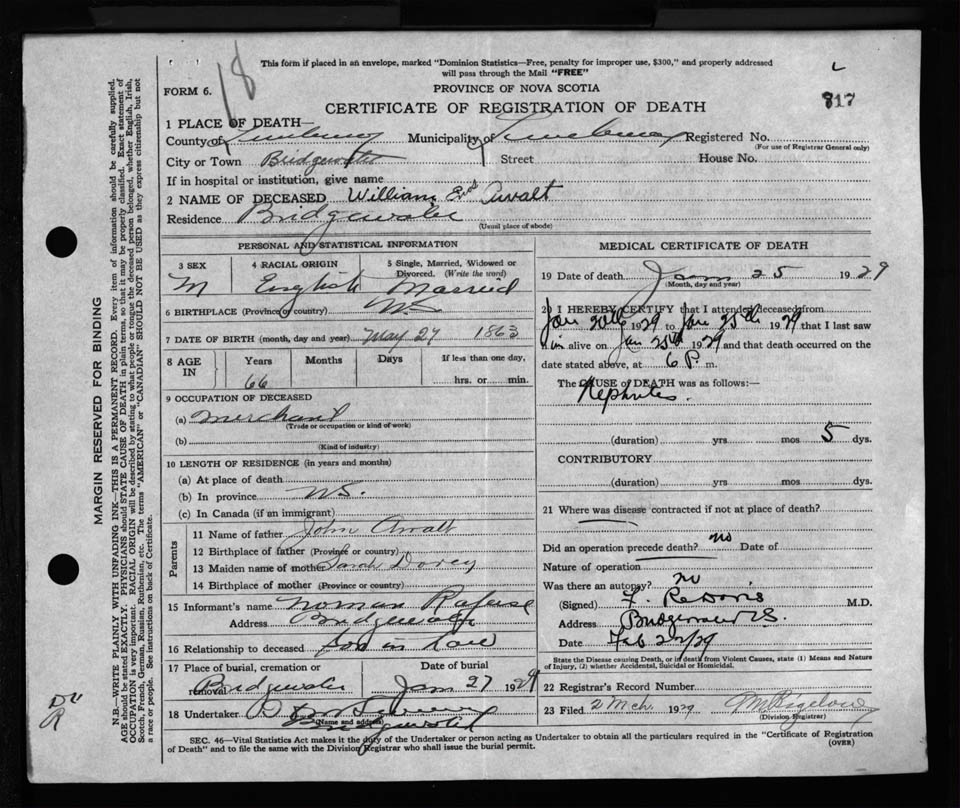 This form if placed in an envelope, marked "Dominion Statistics—Free, penalty for improper use, $300," and properly addressed
will pass through the Mail "FREE"
18
FORM 6.
PROVINCE OF NOVA SCOTIA
817
CERTIFICATE OF REGISTRATION OF DEATH
1 PLACE OF DEATH—
County of Lunenburg Municipality of Lunenburg Registered No.
(For use of Registrar General only)
City or Town Bridgewater Street House No.
If in hospital or institution, give name
2 NAME OF DECEASED William Awalt
Residence Bridgewater
(Usual place of abode)
PERSONAL AND STATISTICAL INFORMATION
3 SEX 4 RACIAL ORIGIN 5 Single, Married, Widowed or
Divorced. (Write the word)
M English Married
6 BIRTHPLACE (Province or country) N.S.
7 DATE OF BIRTH (month, day and year) May 27 1863
8 AGE IN Years Months Days If less than one day,
66 hrs. or min.
9 OCCUPATION OF DECEASED
(a) Merchant
(Trade or occupation or kind of work)
(b)
(Kind of industry)
10 LENGTH OF RESIDENCE (in years and months)
(a) At place of death
(b) In province N.S.
(c) In Canada (if an immigrant)
Parents
11 Name of father John Awalt
12 Birthplace of father (Province or country)
13 Maiden name of mother Sarah Dorey
14 Birthplace of mother (Province or country)
15 Informant's name Norman Rafuse
Address Bridgewater
16 Relationship to deceased Son in law
17 Place of burial, cremation or Date of burial
removal Bridgewater Jan 27 1929
18 Undertaker
(Name and address)
Bridgewater
MEDICAL CERTIFICATE OF DEATH
19 Date of death Jan 25 1929
(Month, day and year)
20 I HEREBY CERTIFY that I attended deceased from
Jan 20th 1929 to Jan 25th 1929 that I last saw
him alive on Jan 25th 1929 and that death occurred on the
date stated above, at 6 P. m.
The CAUSE OF DEATH was as follows:—
Nephrites.
(duration) yrs mos 5 dys.
CONTRIBUTORY
(duration) yrs mos dys.
21 Where was disease contracted if not at place of death?
Did an operation precede death? no Date of
Nature of operation
Was there an autopsy? no
(Signed) F. R. Davis M.D.
Address Bridgewater N.S.
Date Feb /29
State the Disease causing Death, or in death from Violent Causes, state (1) Means and Nature
of Injury, (2) whether Accidental, Suicidal or Homicidal.
22 Registrar's Record Number
23 Filed 2 Mch. 1929 Bigelow
(Division Registrar)
SEC. 46—Vital Statistics Act makes it the duty of the Undertaker or person acting as Undertaker to obtain all the particulars required in the "Certificate of Registration
of Death" and to file the same with the Division Registrar who shall issue the burial permit.
(OVER)
MARGIN RESERVED FOR BINDING
N.B.—WRITE PLAINLY WITH UNFADING INK—THIS IS A PERMANENT RECORD. Every item of information should be carefully supplied.
AGE should be stated EXACTLY. PHYSICIANS should STATE CAUSE OF DEATH in plain terms, so that it may be properly classified. Exact statement of
OCCUPATION is very important. RACIAL ORIGIN will be described by stating to what people or tongue the deceased person belonged, whether English, Irish,
Scotch, French, German, Russian, Ruthenian, etc. The terms "AMERICAN" or "CANADIAN" SHOULD NOT BE USED as they express citizenship but not
a race or people. See instructions on back of Certificate.